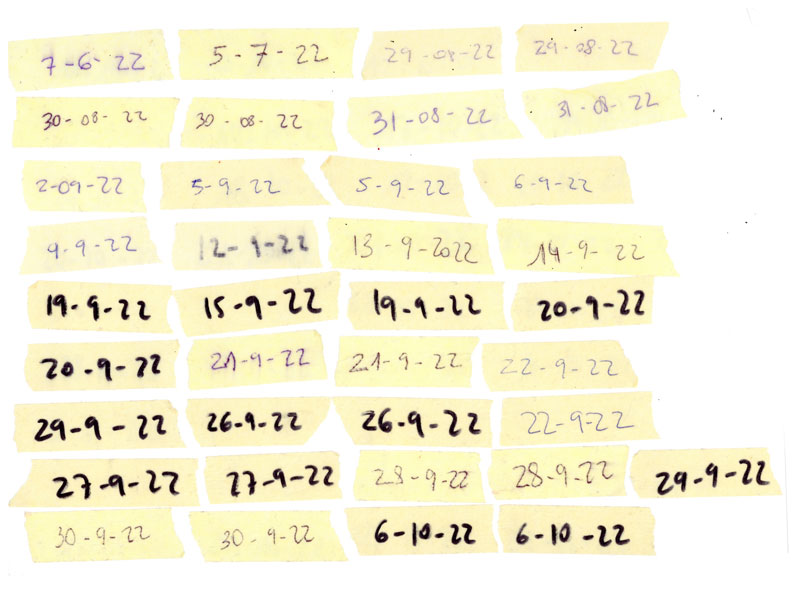 7-6-22 5-7-22 29-08-22 29-08-22
30-08-22 30-08-22 31-08-22 31-08-22
2-09-22 5-9-22 5-9-22 6-9-22
9-9-22 12-9-22 13-9-2022 14-9-22
19-9-22 15-9-22 19-9-22 20-9-22
20-9-22 21-9-22 21-9-22 22-9-22
29-9-22 26-9-22 26-9-22 22-9-22
27-9-22 27-9-22 28-9-22 28-9-22 29-9-22
30-9-22 30-9-22 6-10-22 6-10-22